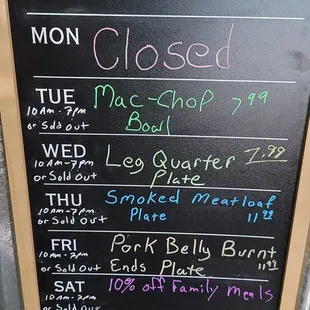 MON Closed
TUE Mac-Chop 7.99
10AM-7PM Bowl
or Sold Out
WED Leg Quarter 7.99
10AM-7PM Plate
or Sold Out
THU Smoked Meatloaf
10AM-7PM Plate 11.99
or Sold Out
FRI Pork Belly Burnt
10AM-7PM Ends Plate 11.99
or Sold Out
SAT 10% off Family Meals
10AM-7PM
or Sold Out